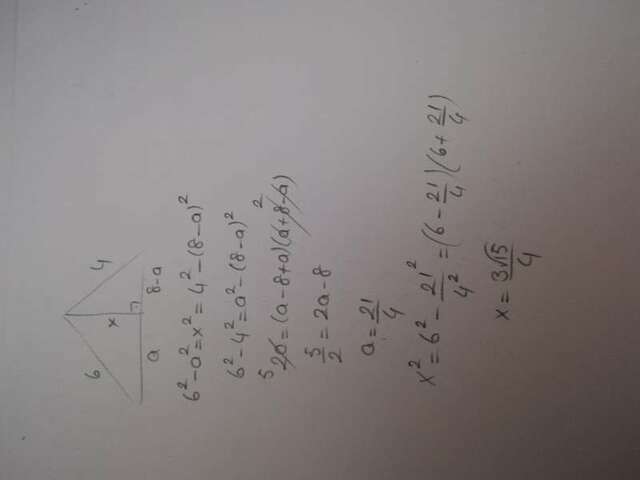 6 4
x
a 8-a
6² - a² = x² = 4² - (8-a)²
6² - 4² = a² - (8-a)²
5 20 = (a-8+a)(a+8-a) 2
5/2 = 2a - 8
a = 21/4
x² = 6² - 21²/4² = (6 - 21/4)(6 + 21/4)
x = 3√15/4